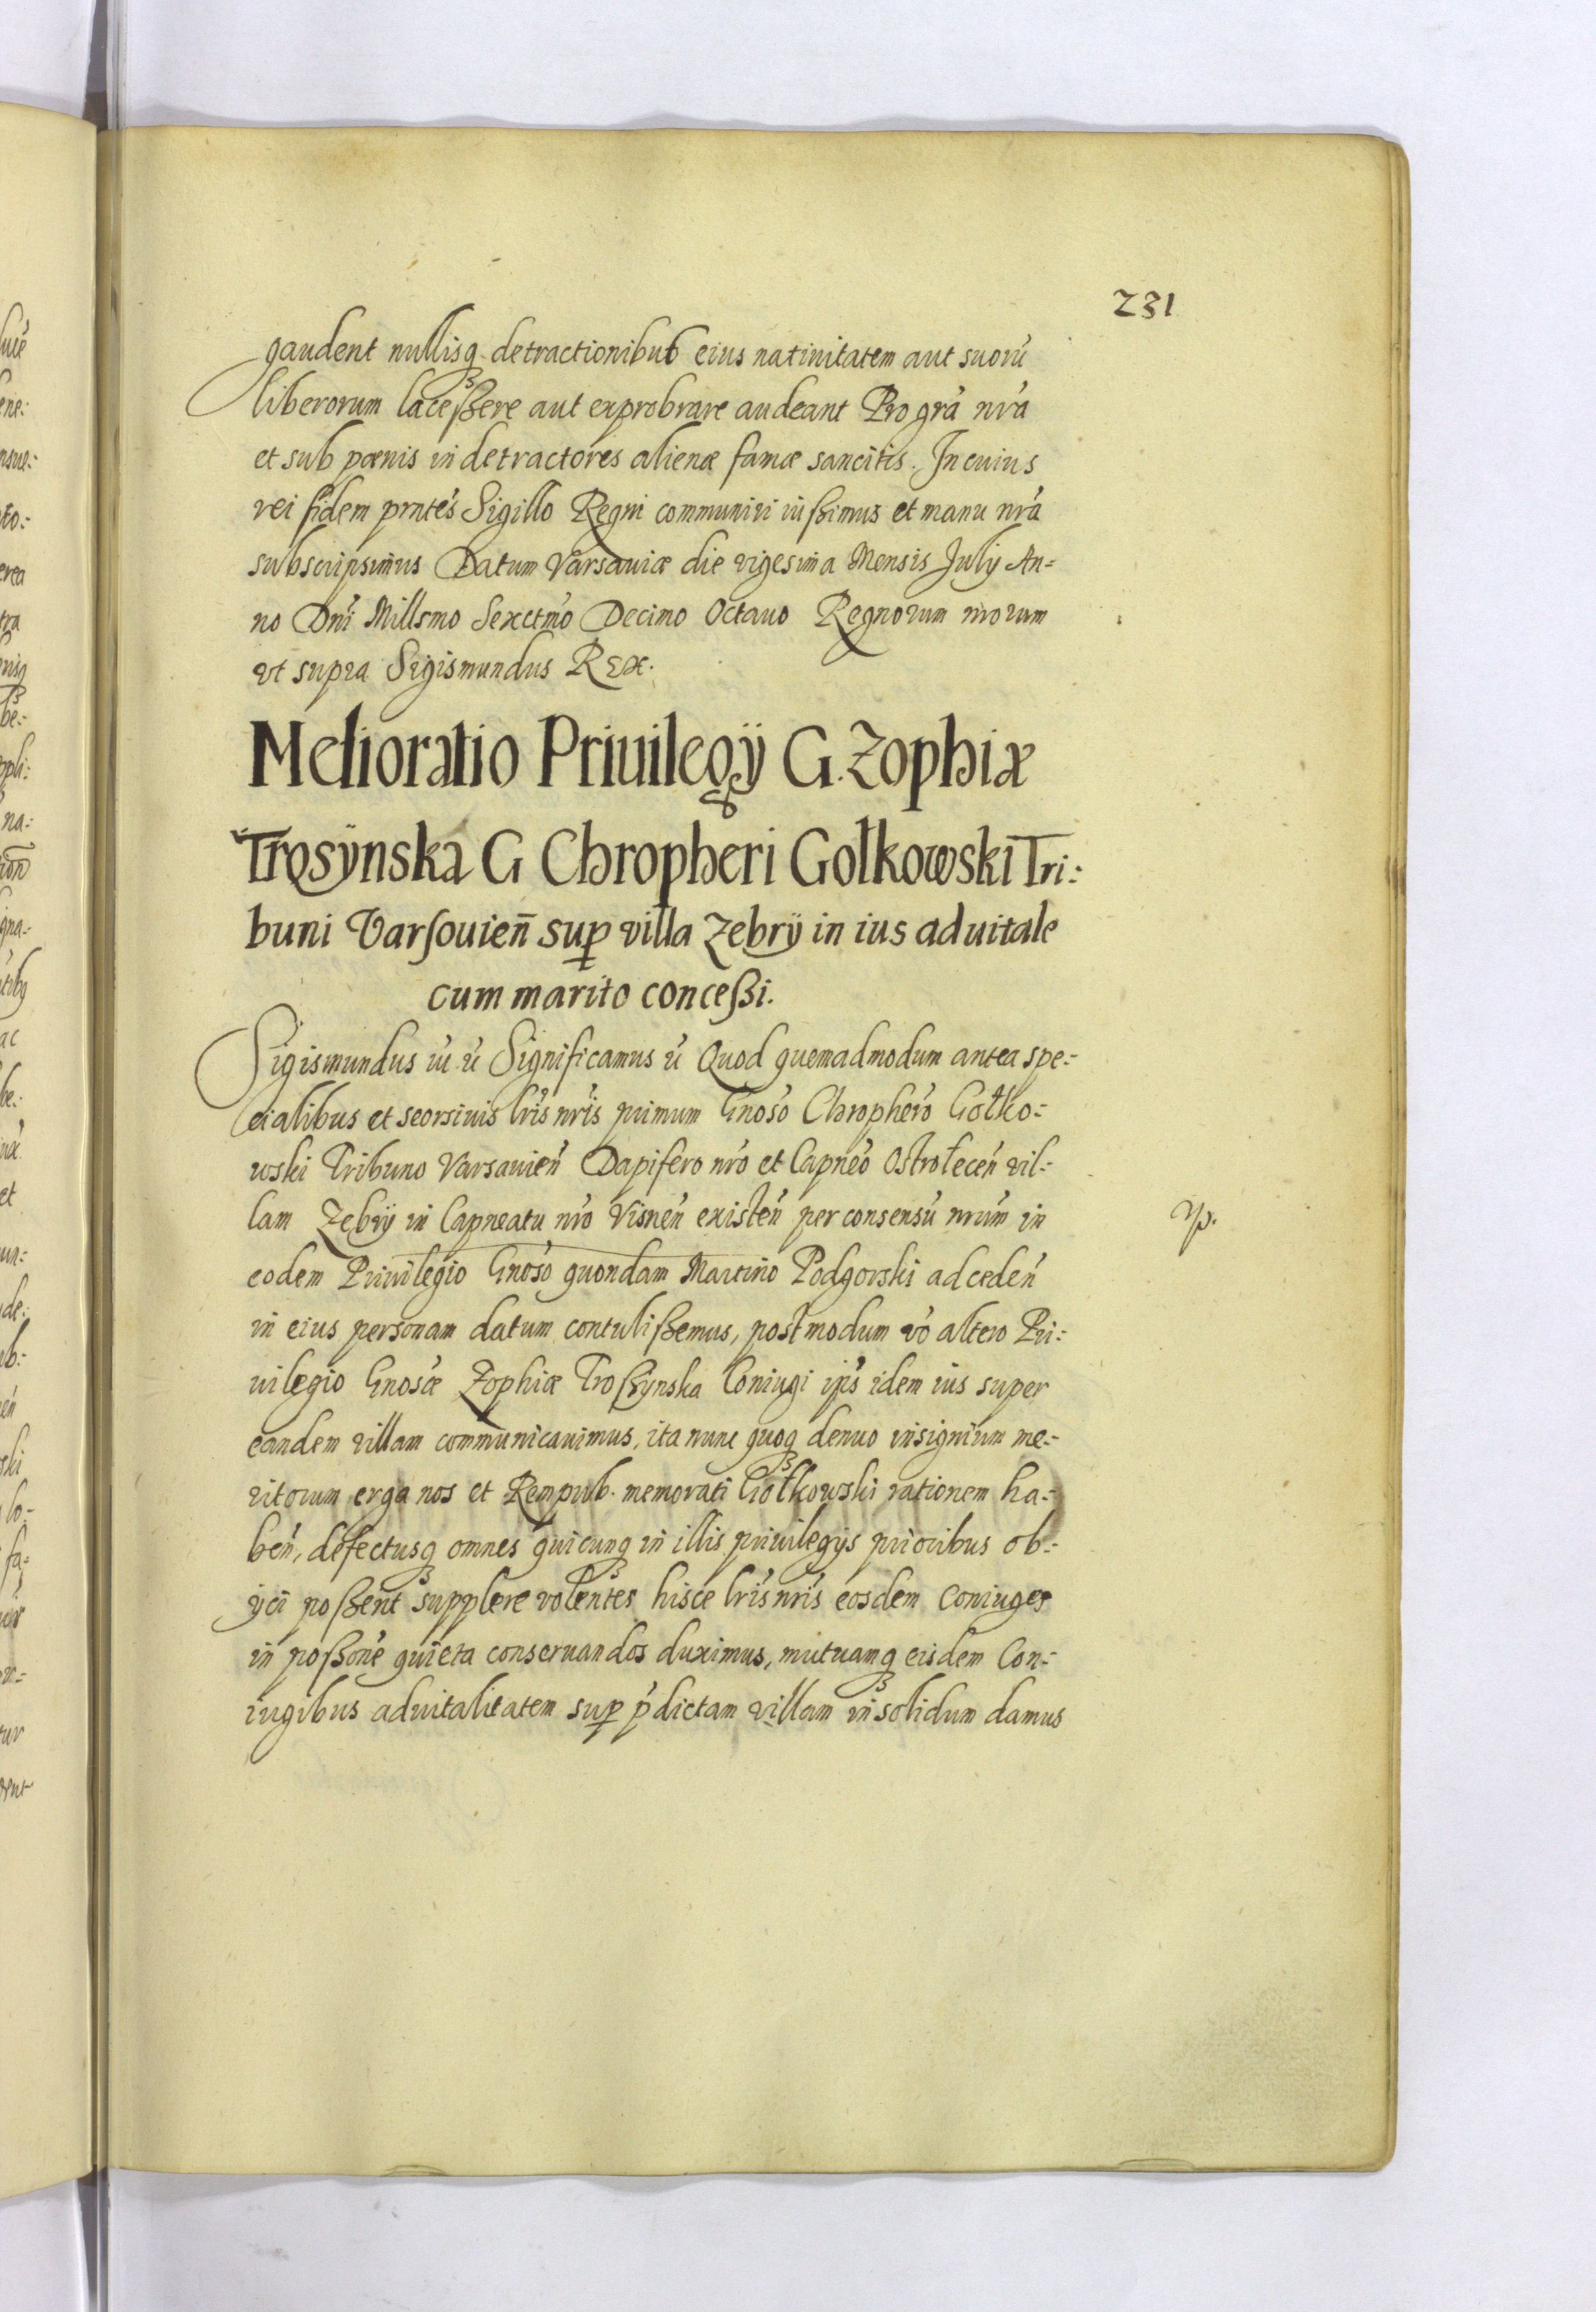 231
gaudent nullisq₃ detractionibus eius natiuitatem aut suorú
liberorum laceßere aut exprobrare audeant Pro grá nrá
et sub pœnis in detractores alienæ famæ sancitis. In cuius
rei fidem prntés Sigillo Regni communiri iußimus et manu nrá
subscripsimus Datum Varsauiæ die vigesima Mensis July An=
no Dní Millsmo Sexctmó Decimo Octauo Regnorum nrorum
vt supra Sigismundus REX.
Melioratio Priuilegÿ G. Zophiæ
Trosÿnska G Chropheri Gołkowski Tri:
buni Varsouien̄ sup villa Zebrÿ in ius aduitale
cum marito conceßi.
Sigismundus ú ú Significamus ú Quod quemadmodum antea spe=
cialibus et seorsiuis lrís nrís primum Gnosó Chropheró Gołko=
wski Tribuno Varsauień Dapifero nró et Capneó Ostrołeceń vil=
lam Zebrÿ in Capneatu nró Visneń existeń per consensú nrúm in
yp.
eodem Priuilegio Gnosó quondam Martino Podgorski ad cedeń
in eius personam datum contulißemus, postmodum vó altero Pri:
uilegio Gnosæ Zophiæ Troßÿnska Coniugi ipís idem ius super
eandem villam communicauimus, ita nunc quoq₃ denuo insignium me=
ritorum erga nos et Rempub. memorati Gołkowski rationem ha=
beń, defectusq₃ omnes quicunq₃ in illis priuilegÿs prioribus ob=
ÿci poßent supplere volentes hisce lrís nrís eosdem Coniuges
in poßoné quieta conseruandos duximus, mutuamq₃ eisdem Con=
iugibus aduitalitatem sup pdictam villam insolidum damus